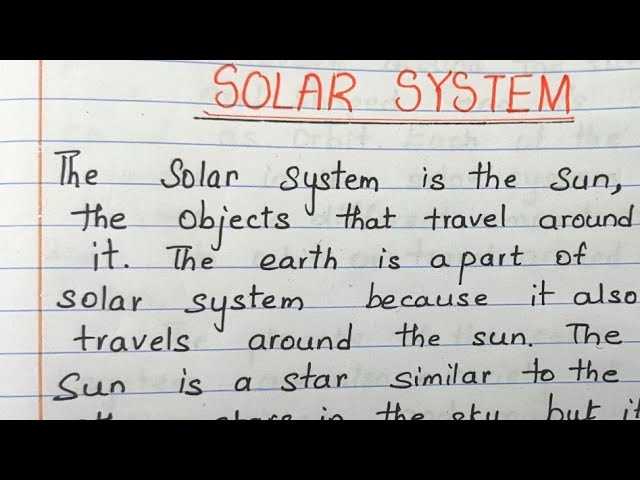 SOLAR SYSTEM
The Solar System is the Sun,
the objects that travel around
it. The earth is a part of
solar system because it also
travels around the sun. The
Sun is a star similar to the
stars in the sky, but it